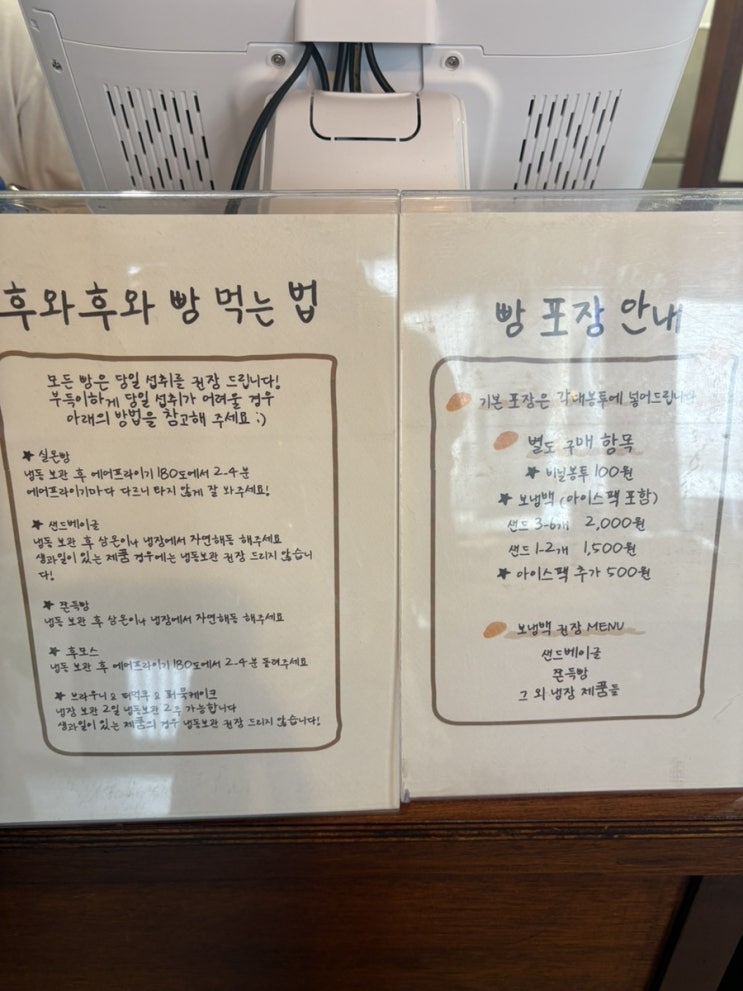 후와후와 빵 먹는 법
모든 빵은 당일 섭취를 권장 드립니다!
부득이하게 당일 섭취가 어려울 경우
아래의 방법을 참고해 주세요 :)
★ 실온빵
냉동 보관 후 에어프라이기 180도에서 2-4분
에어프라이기마다 다르니 타지 않게 잘 봐주세요!
★ 샌드베이글
냉동 보관 후 상온이나 냉장에서 자연해동 해주세요
생과일이 있는 제품 경우에는 냉동보관 권장 드리지 않습니
다!
★ 쫀득빵
냉동 보관 후 상온이나 냉장에서 자연해동 해주세요
★ 후모스
냉동 보관 후 에어프라이기 180도에서 2-4분 돌려주세요
★ 브라우니 & 퍼넛쿠 & 퍼물케이크
냉장 보관 2일 냉동보관 2주 가능합니다
생과일이 있는 제품의 경우 냉동보관 권장 드리지 않습니다!
빵 포장 안내
기본 포장은 각대봉투에 넣어드립니다
별도 구매 항목
★ 비닐봉투 100원
★ 보냉백 (아이스팩 포함)
샌드 3-6개 2,000원
샌드 1-2개 1,500원
★ 아이스팩 추가 500원
보냉백 권장 MENU
샌드베이글
쫀득빵
그 외 냉장 제품들